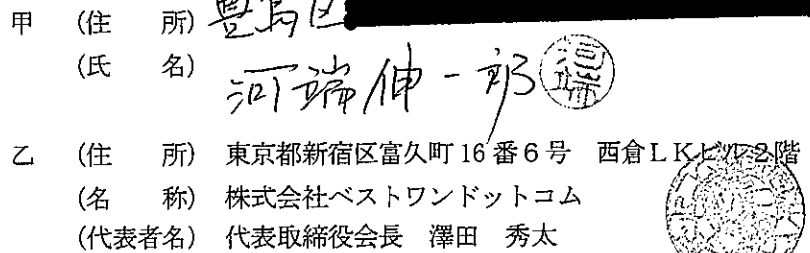 甲 (住 所) 豊島区
(氏 名) 河端伸一郎 河端
乙 (住 所) 東京都新宿区富久町16番6号 西倉LKビル2階
(名 称) 株式会社ベストワンドットコム
(代表者名) 代表取締役会長 澤田 秀太